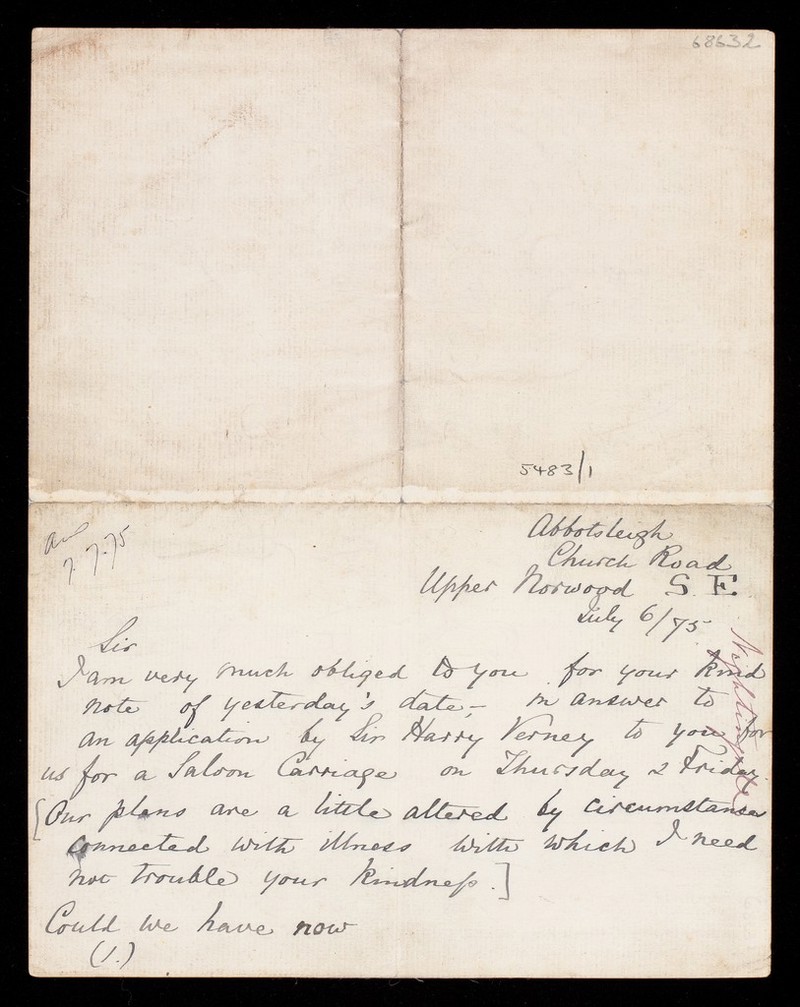 68632
5483/1
7.7.75
Abbotsleigh
Church Road
Upper Norwood S.E.
July 6/75
Nightingale
Sir
I am very much obliged to you for your kind
note of yesterday's date, - in answer to
an application by Sir Harry Verney to you for
us for a Saloon Carriage on Thursday & Friday.
[Our plans are a little altered by circumstances
connected with illness with which I need
not trouble your kindness.]
Could we have now
(1.)